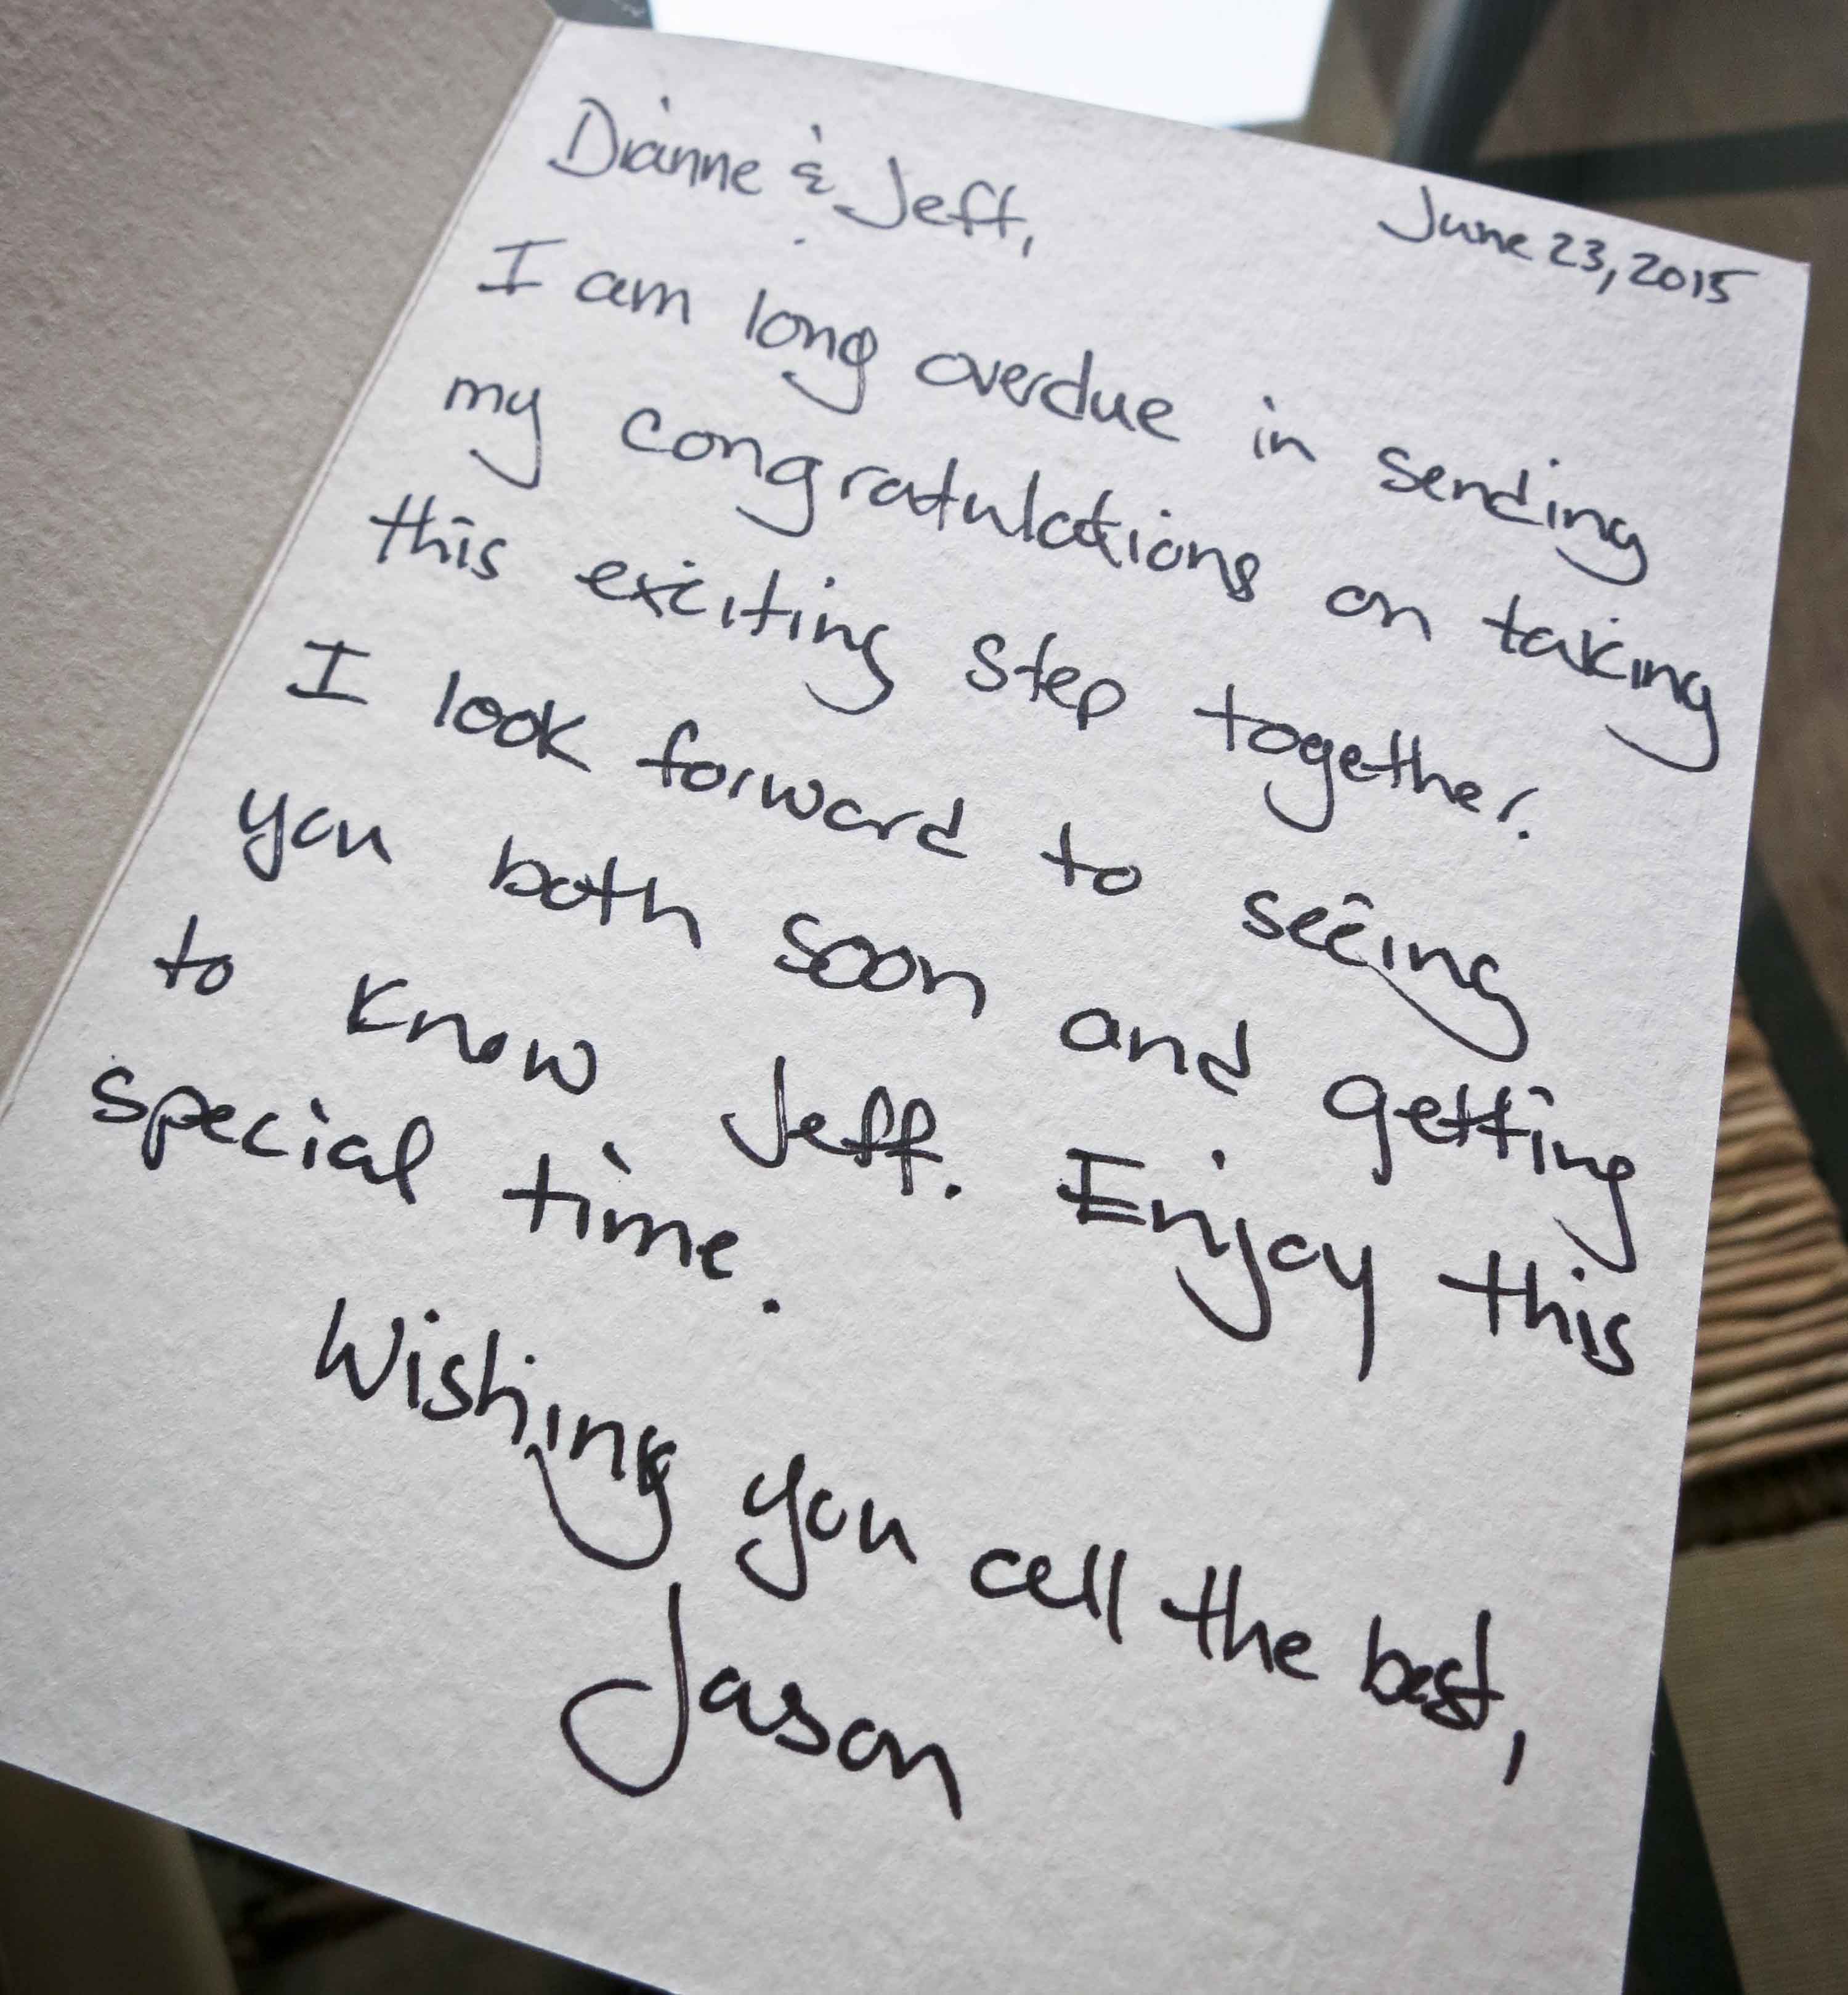 June 23, 2015
Dianne & Jeff,
I am long overdue in sending
my congratulations on taking
this exciting step together.
I look forward to seeing
you both soon and getting
to know Jeff. Enjoy this
special time.
Wishing you all the best,
Jason